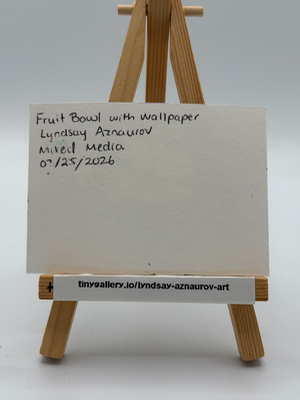 Fruit Bowl with Wallpaper
Lyndsay Aznaurov
Mixed Media
tinygallery.io/lyndsay-aznaurov-art